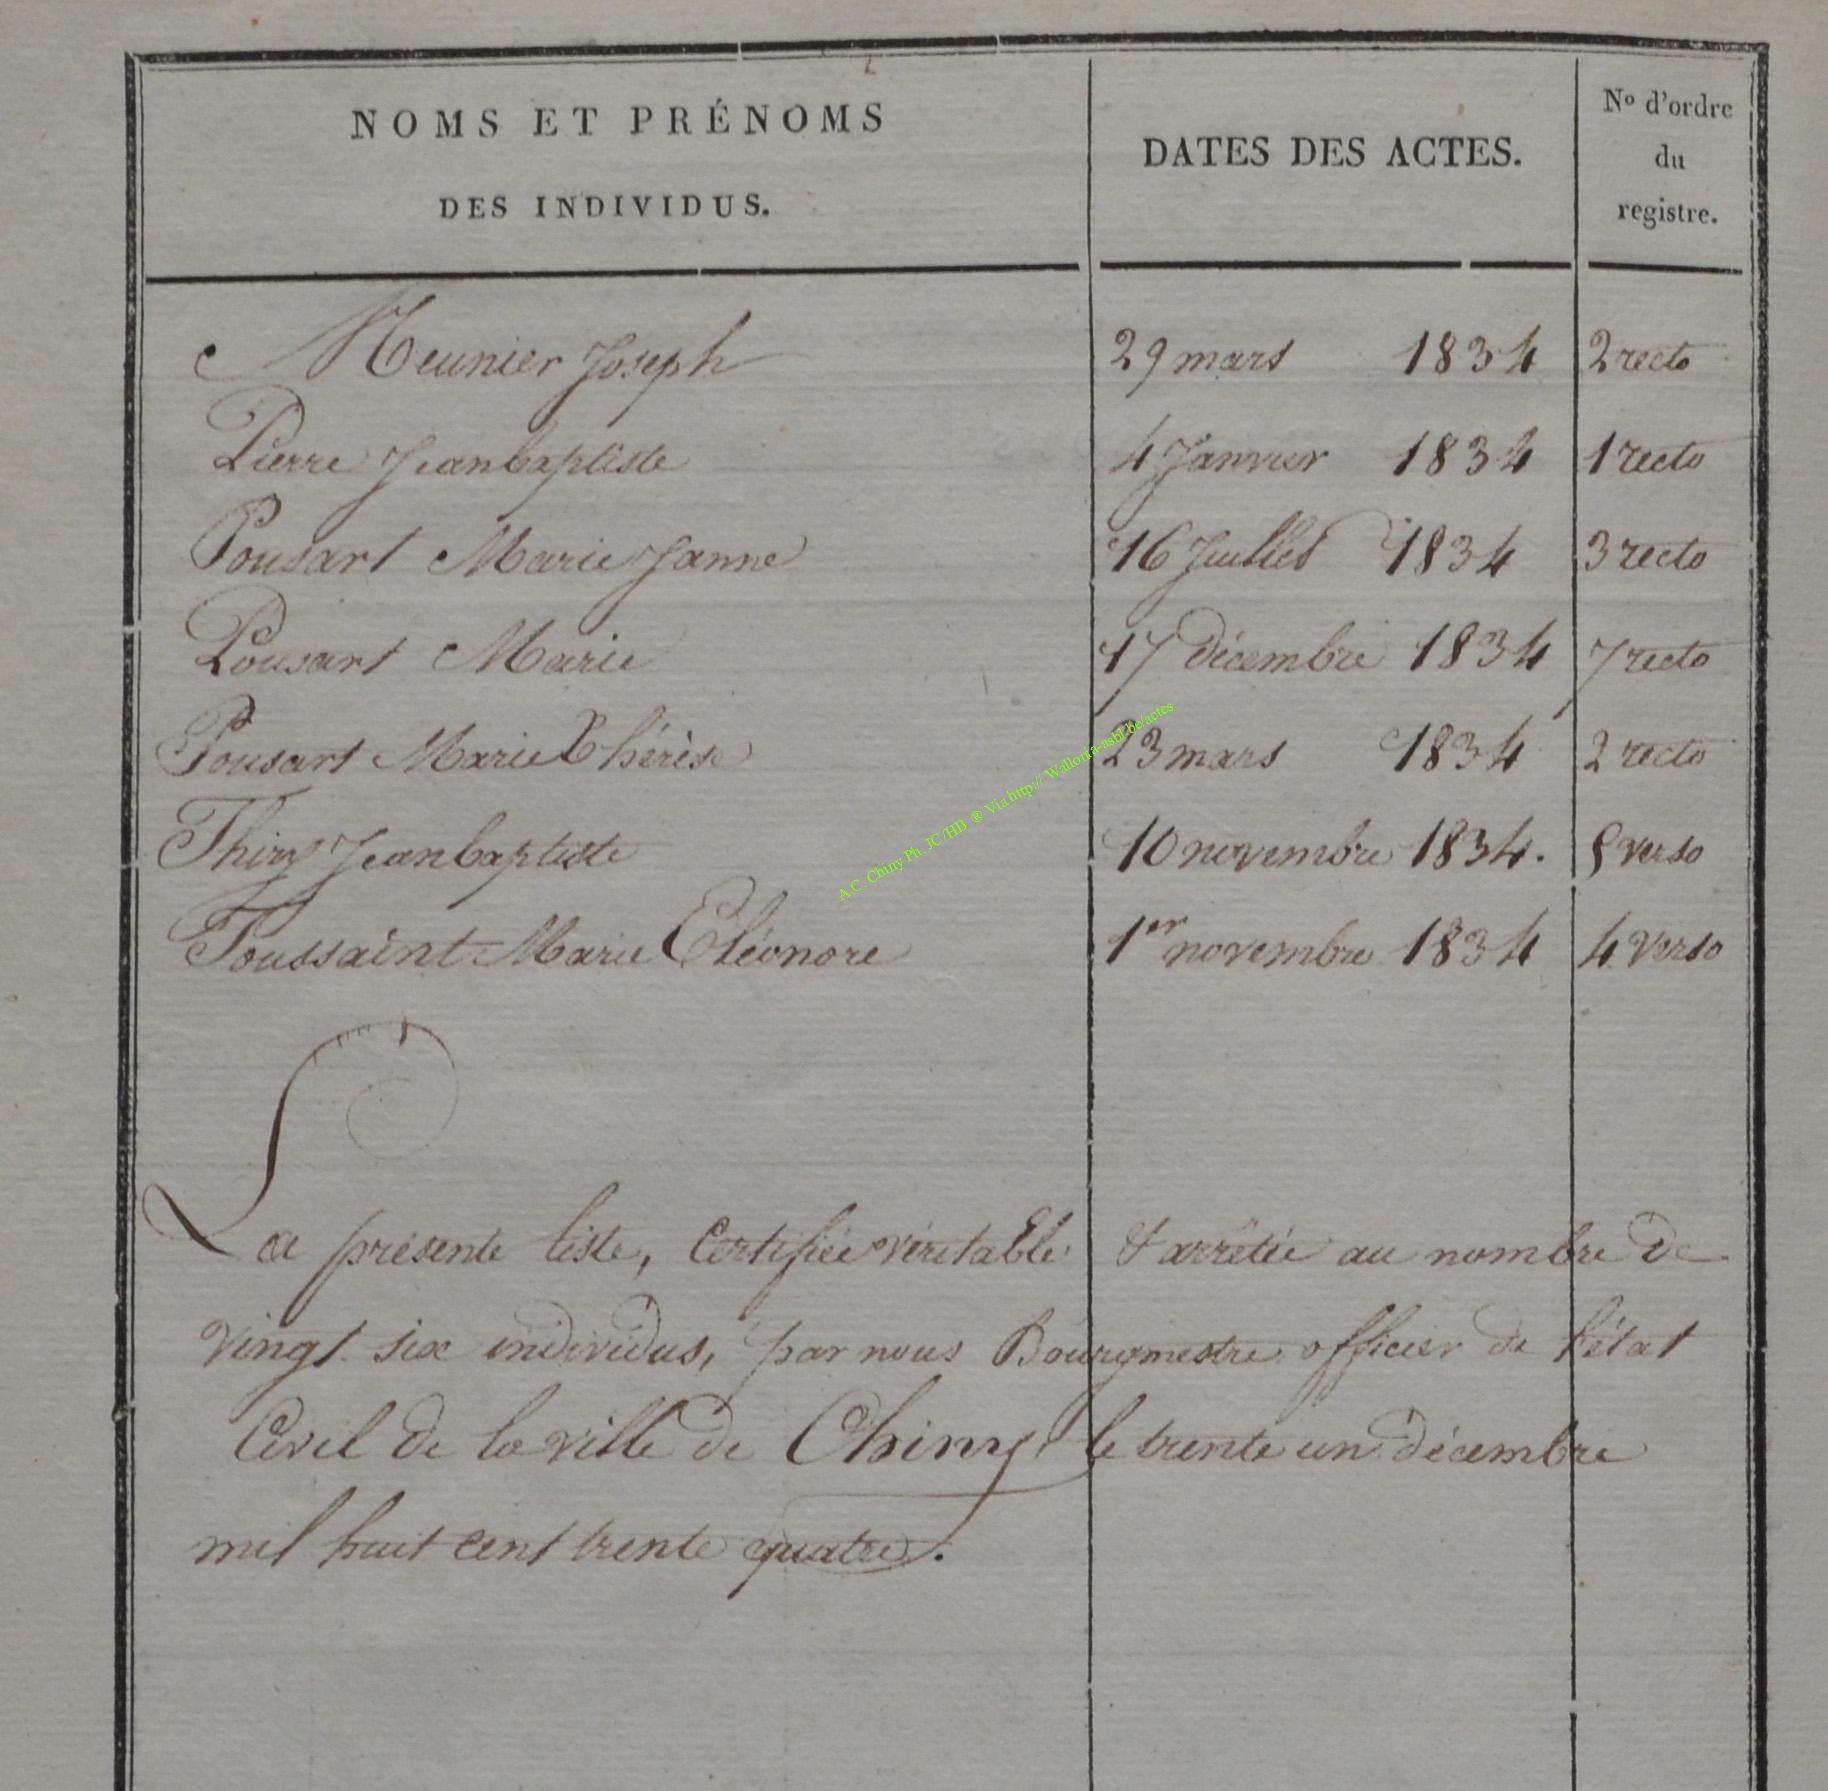 NOMS ET PRÉNOMS
DES INDIVIDUS.
DATES DES ACTES.
Nº d'ordre
du
registre.
Meunier Joseph 29 mars 1834 2 recto
Pierre Jeanbaptiste 4 Janvier 1834 1 recto
Pousart Marie Janne 16 Juillet 1834 3 recto
Pousart Marie 17 décembre 1834 7 recto
Pousart Marie Thérèse 23 mars 1834 2 recto
Thiry Jeanbaptiste 10 novembre 1834. 5 verso
Toussaint Marie Eléonore 1er novembre 1834 4 verso
A.C. Chiny Ph. JC/HB ® Via http://Wallonia-asbl.be/actes
La présente liste, Certifiée véritable & arrêtée au nombre de
vingt six individus, par nous Bourgmestre officier de l'état
Civil de la ville de Chiny le trente un décembre
mil huit cent trente quatre.